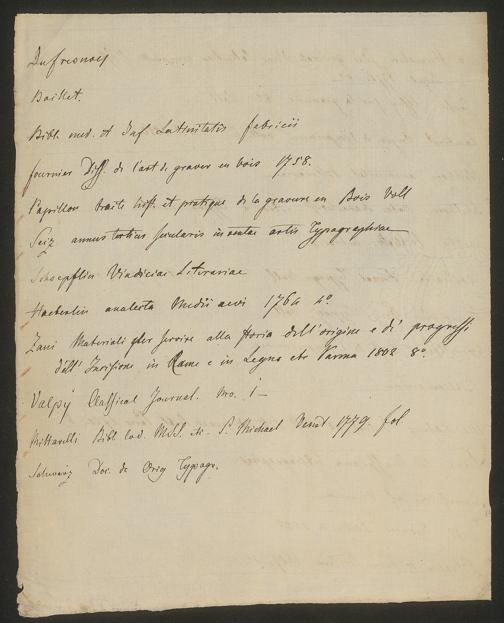 Dufresnoy
Basket.
Bibl. med. et Inf. Latinitatis fabricii
fournier Diss. de l'art de graver en bois 1758.
Papillon traite hist. et pratique de la gravure en Bois Voll
Seiz annus tertius secularis inventae artis Typographicae
Schoepflin Vindiciae Literariae
Haeberlin analecta Medii aevi 1764 4o
Zani Materiali per servire alla storia dell' origine e di progressi
dell' Incisione in Rame e in Legno etc Parma 1802 8o
Valpy Classical Journal. No. 1 –
Mittarelli Bibl. Cod. MSS. S. Michael Venet 1779. fol.
Schwarz Doc. de Orig Typogr.